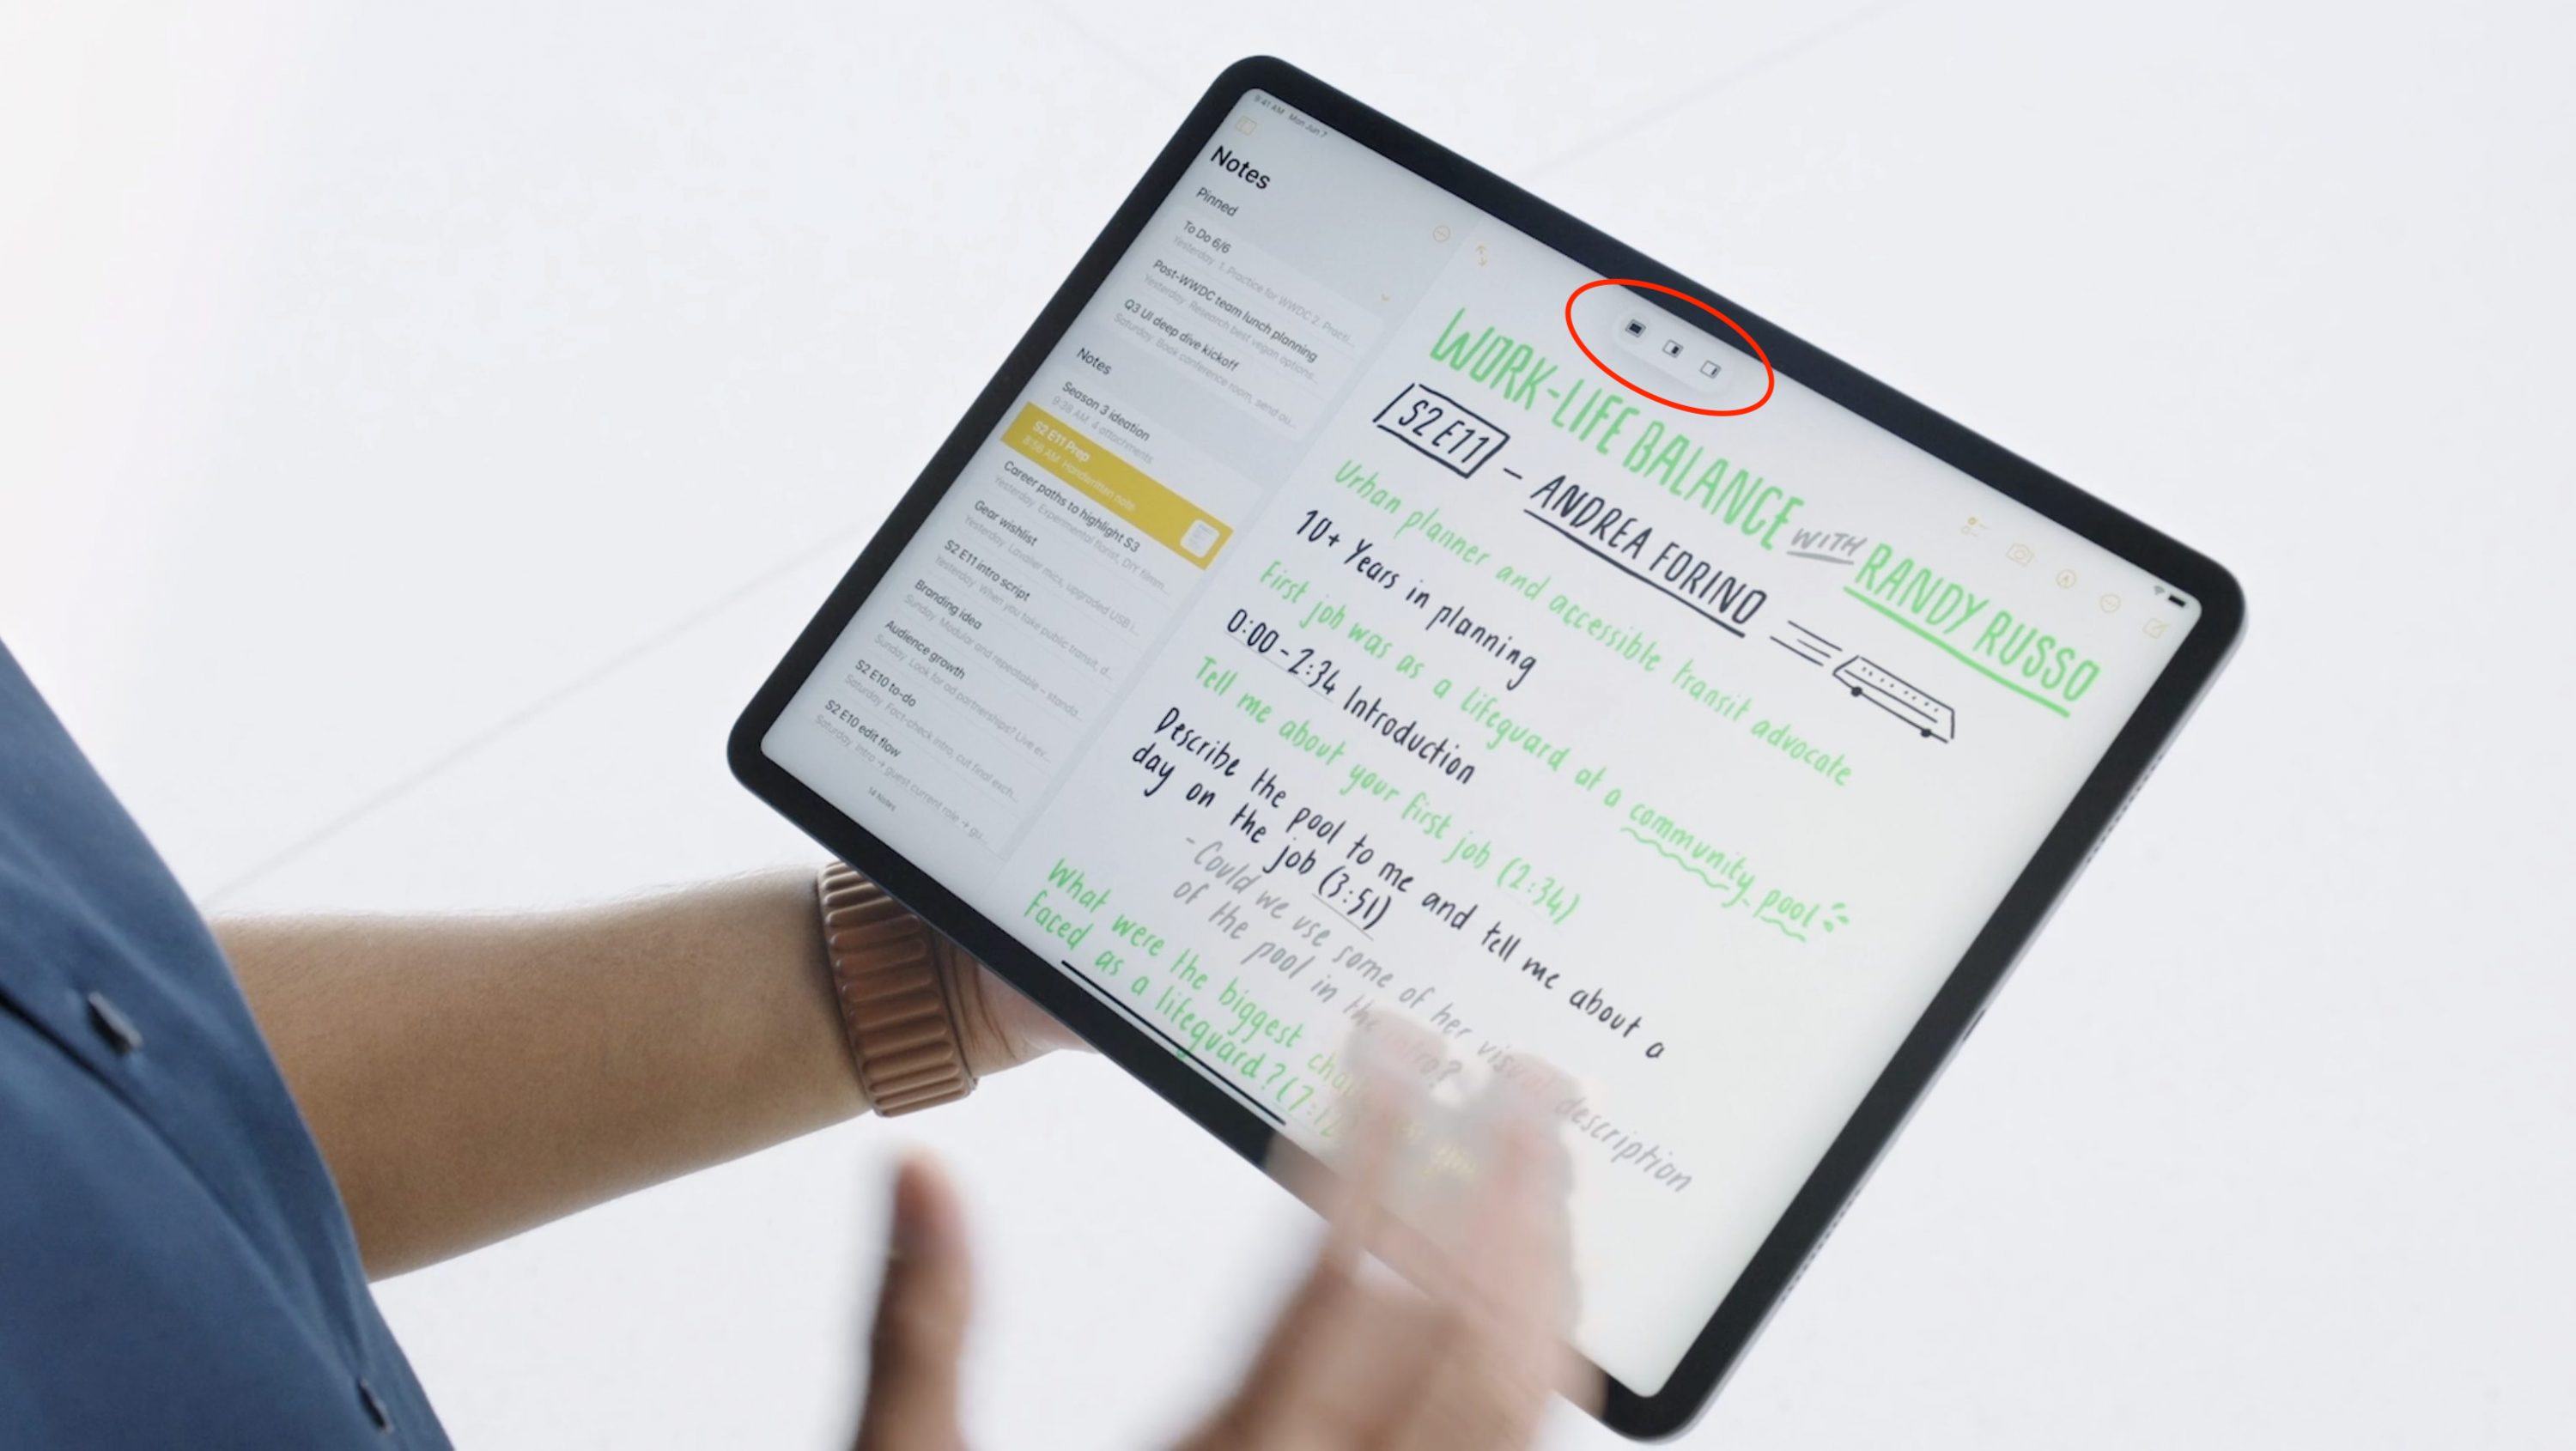 9:41 AM Mon Jun 7
Notes
Pinned
To Do 6/6
Yesterday 1. Practice for WWDC 2. Practi...
Post-WWDC team lunch planning
Yesterday Research best vegan options...
Q3 UI deep dive kickoff
Saturday Book conference room, send ou...
Notes
Season 3 ideation
9:38 AM 4 attachments
S2 E11 Prep
8:56 AM Handwritten note
Career paths to highlight S3
Yesterday Experimental florist, DIY filmm...
Gear wishlist
Yesterday Lavalier mics, upgraded USB i...
S2 E11 intro script
Yesterday When you take public transit, d...
Branding idea
Sunday Modular and repeatable – standa...
Audience growth
Sunday Look for ad partnerships? Live ev...
S2 E10 to-do
Saturday Fact-check intro, cut final exch...
S2 E10 edit flow
Saturday Intro → guest current role → gu...
14 Notes
WORK-LIFE BALANCE WITH RANDY RUSSO
S2 E11 – ANDREA FORINO
Urban planner and accessible transit advocate
10+ Years in planning
First job was as a lifeguard at a community pool
0:00 - 2:34 Introduction
Tell me about your first job (2:34)
Describe the pool to me and tell me about a
day on the job (3:51)
- Could we use some of her visual description
of the pool in the intro?
What were the biggest you
faced as a lifeguard?